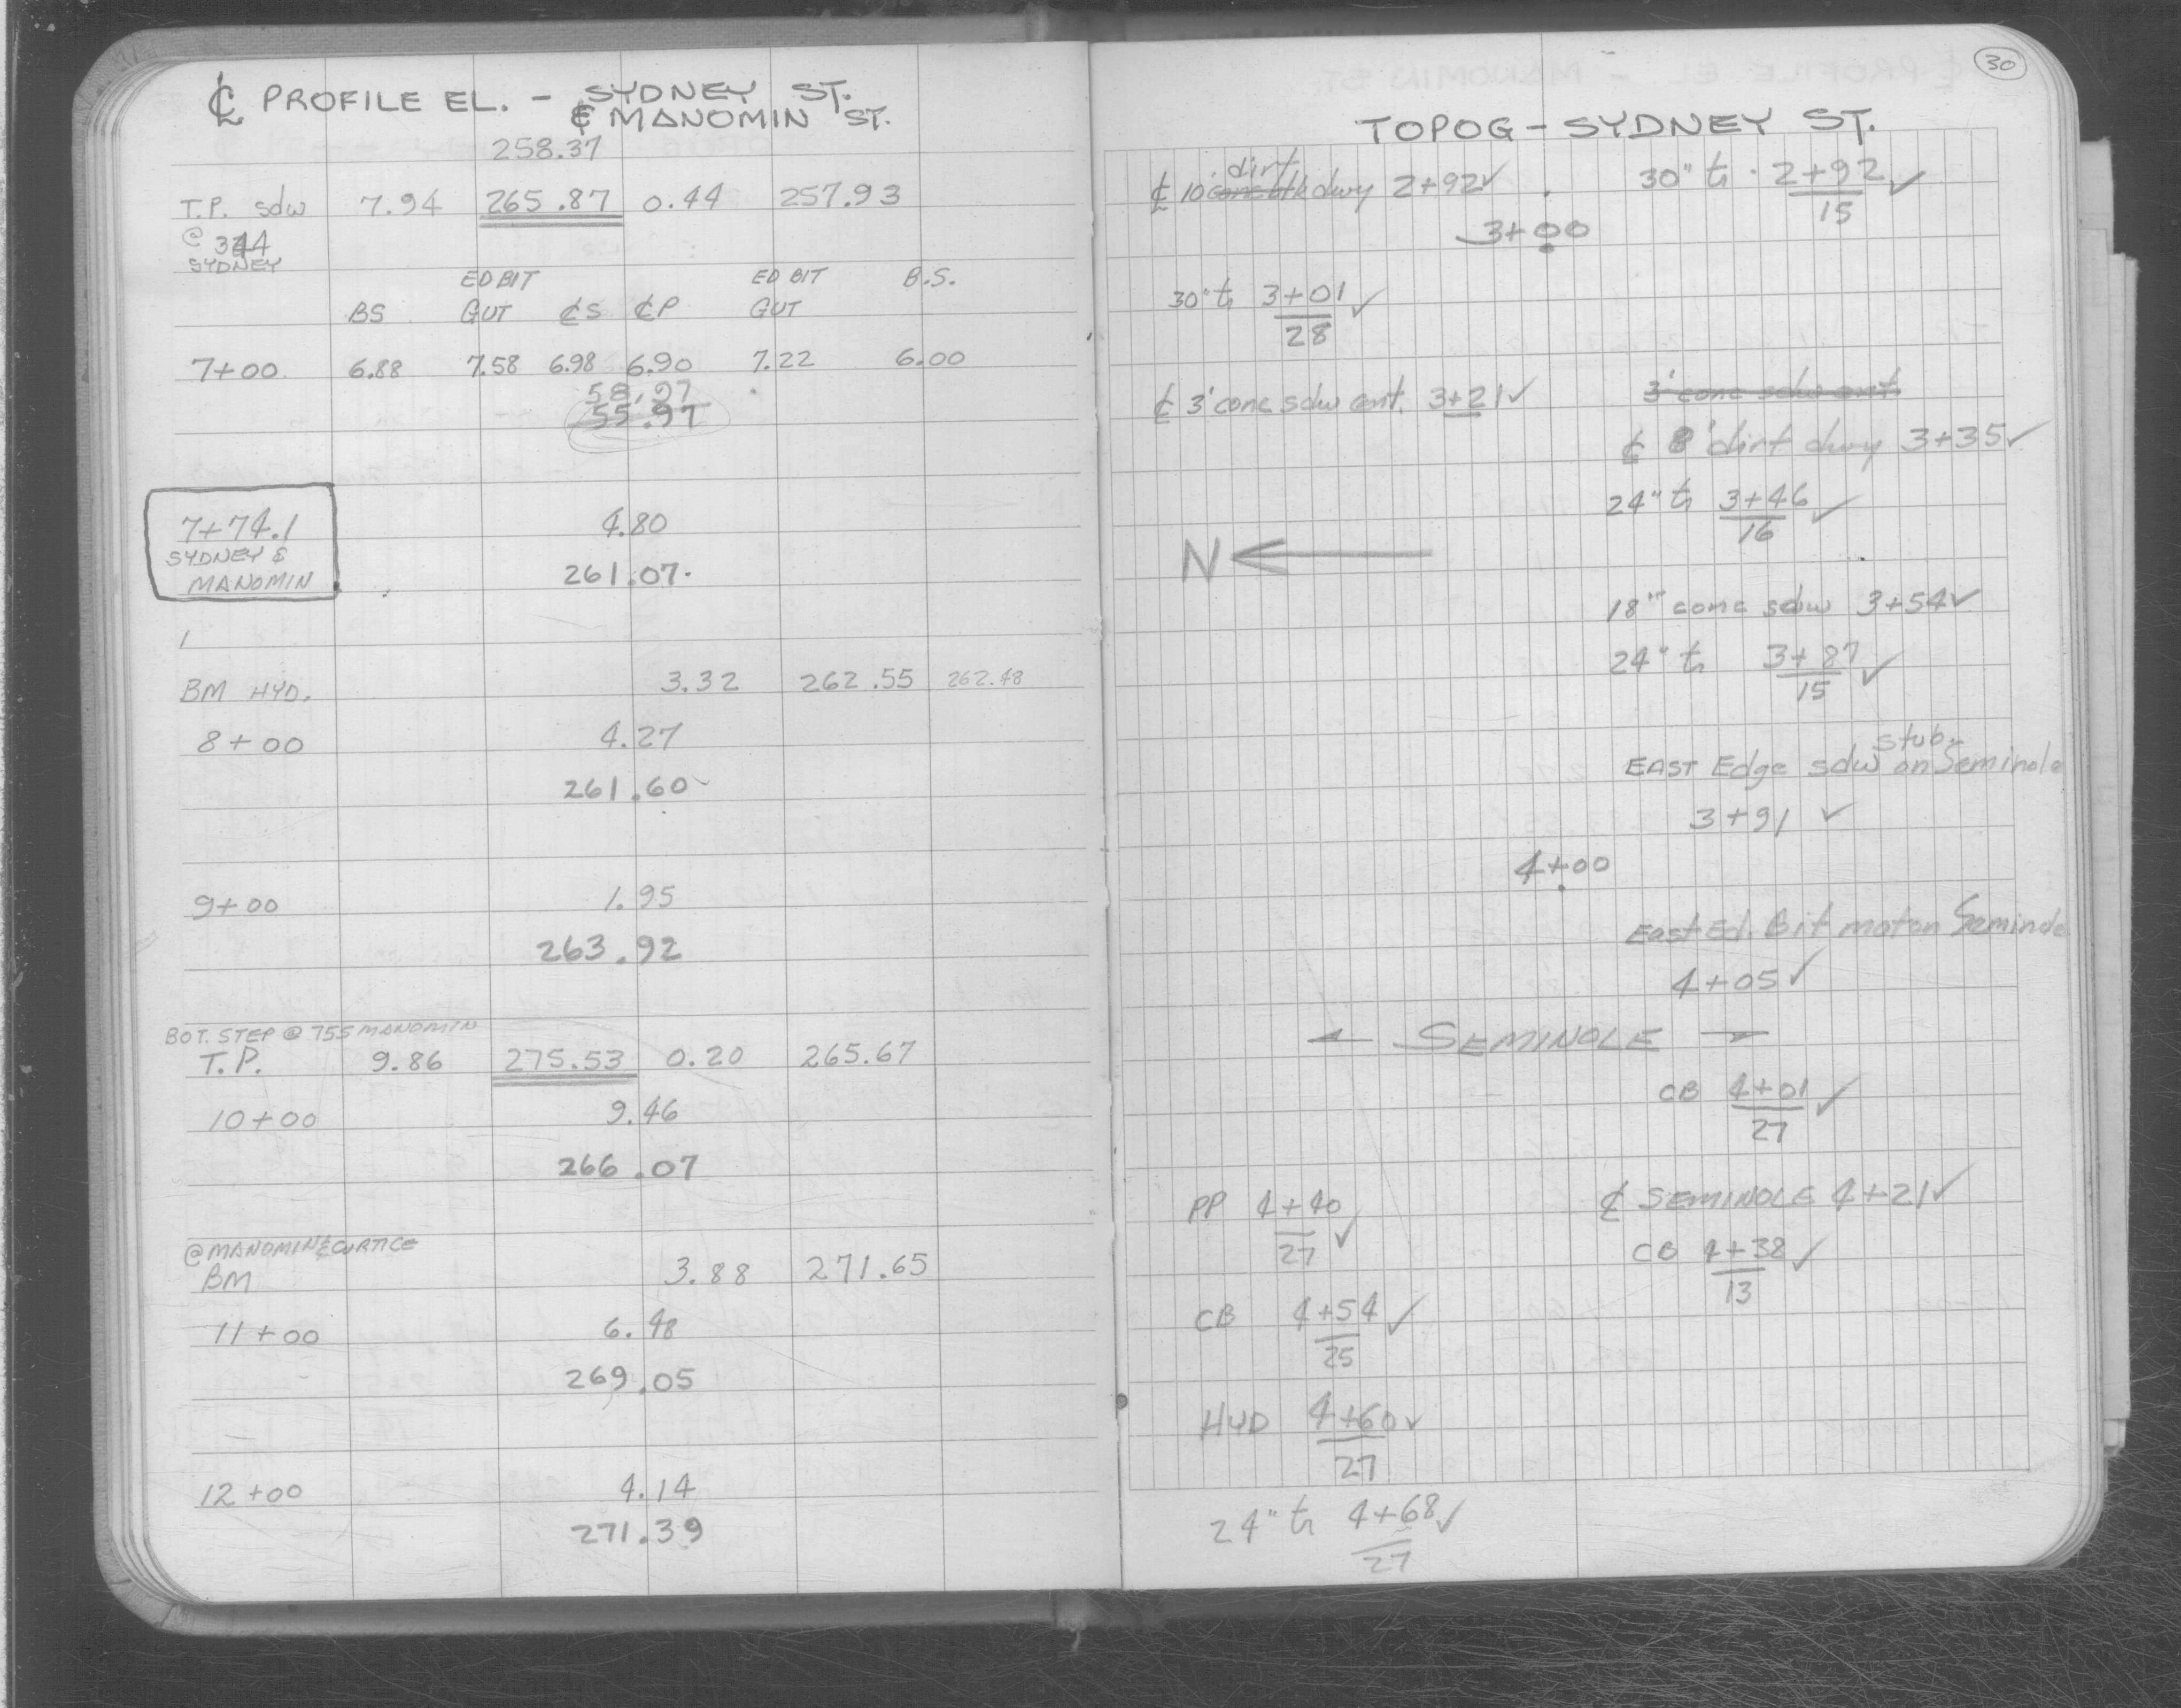 ℄ PROFILE EL. - SYDNEY ST.
& MANOMIN ST.
258.37
T.P. sdw 7.94 265.87 0.44 257.93
@ 344
SYDNEY
ED BIT ED BIT B.S.
BS GUT ℄S ℄P GUT
7+00 6.88 7.58 6.98 6.90 7.22 6.00
58.97
55.97
7+74.1 4.80
SYDNEY &
MANOMIN 261.07
BM HYD. 3.32 262.55 262.48
8+00 4.27
261.60
9+00 1.95
263.92
BOT. STEP @ 755 MANOMIN
T.P. 9.86 275.53 0.20 265.67
10+00 9.46
266.07
@ MANOMIN & CURTICE
BM 3.88 271.65
11+00 6.48
269.05
12+00 4.14
271.39
30
TOPOG - SYDNEY ST.
dirt
℄ 10 dwy 2+92 ✓ 30" tr 2+92 ✓
15
3+00
30" tr 3+01 ✓
28
℄ 3' conc sdw ent. 3+21 ✓ 3' conc sdw ent.
℄ 8' dirt dwy 3+35 ✓
24" tr 3+46 ✓
16
N
18" conc sdw 3+54 ✓
24" tr 3+87 ✓
15
stub
EAST Edge sdw on Seminole
3+91 ✓
4+00
East Ed. Bit mat on Seminole
4+05 ✓
← SEMINOLE →
CB 4+01 ✓
27
PP 4+40 ✓ ℄ SEMINOLE 4+21 ✓
27
CB 4+38 ✓
13
CB 4+54 ✓
25
HYD 4+60 ✓
27
24" tr 4+68 ✓
27